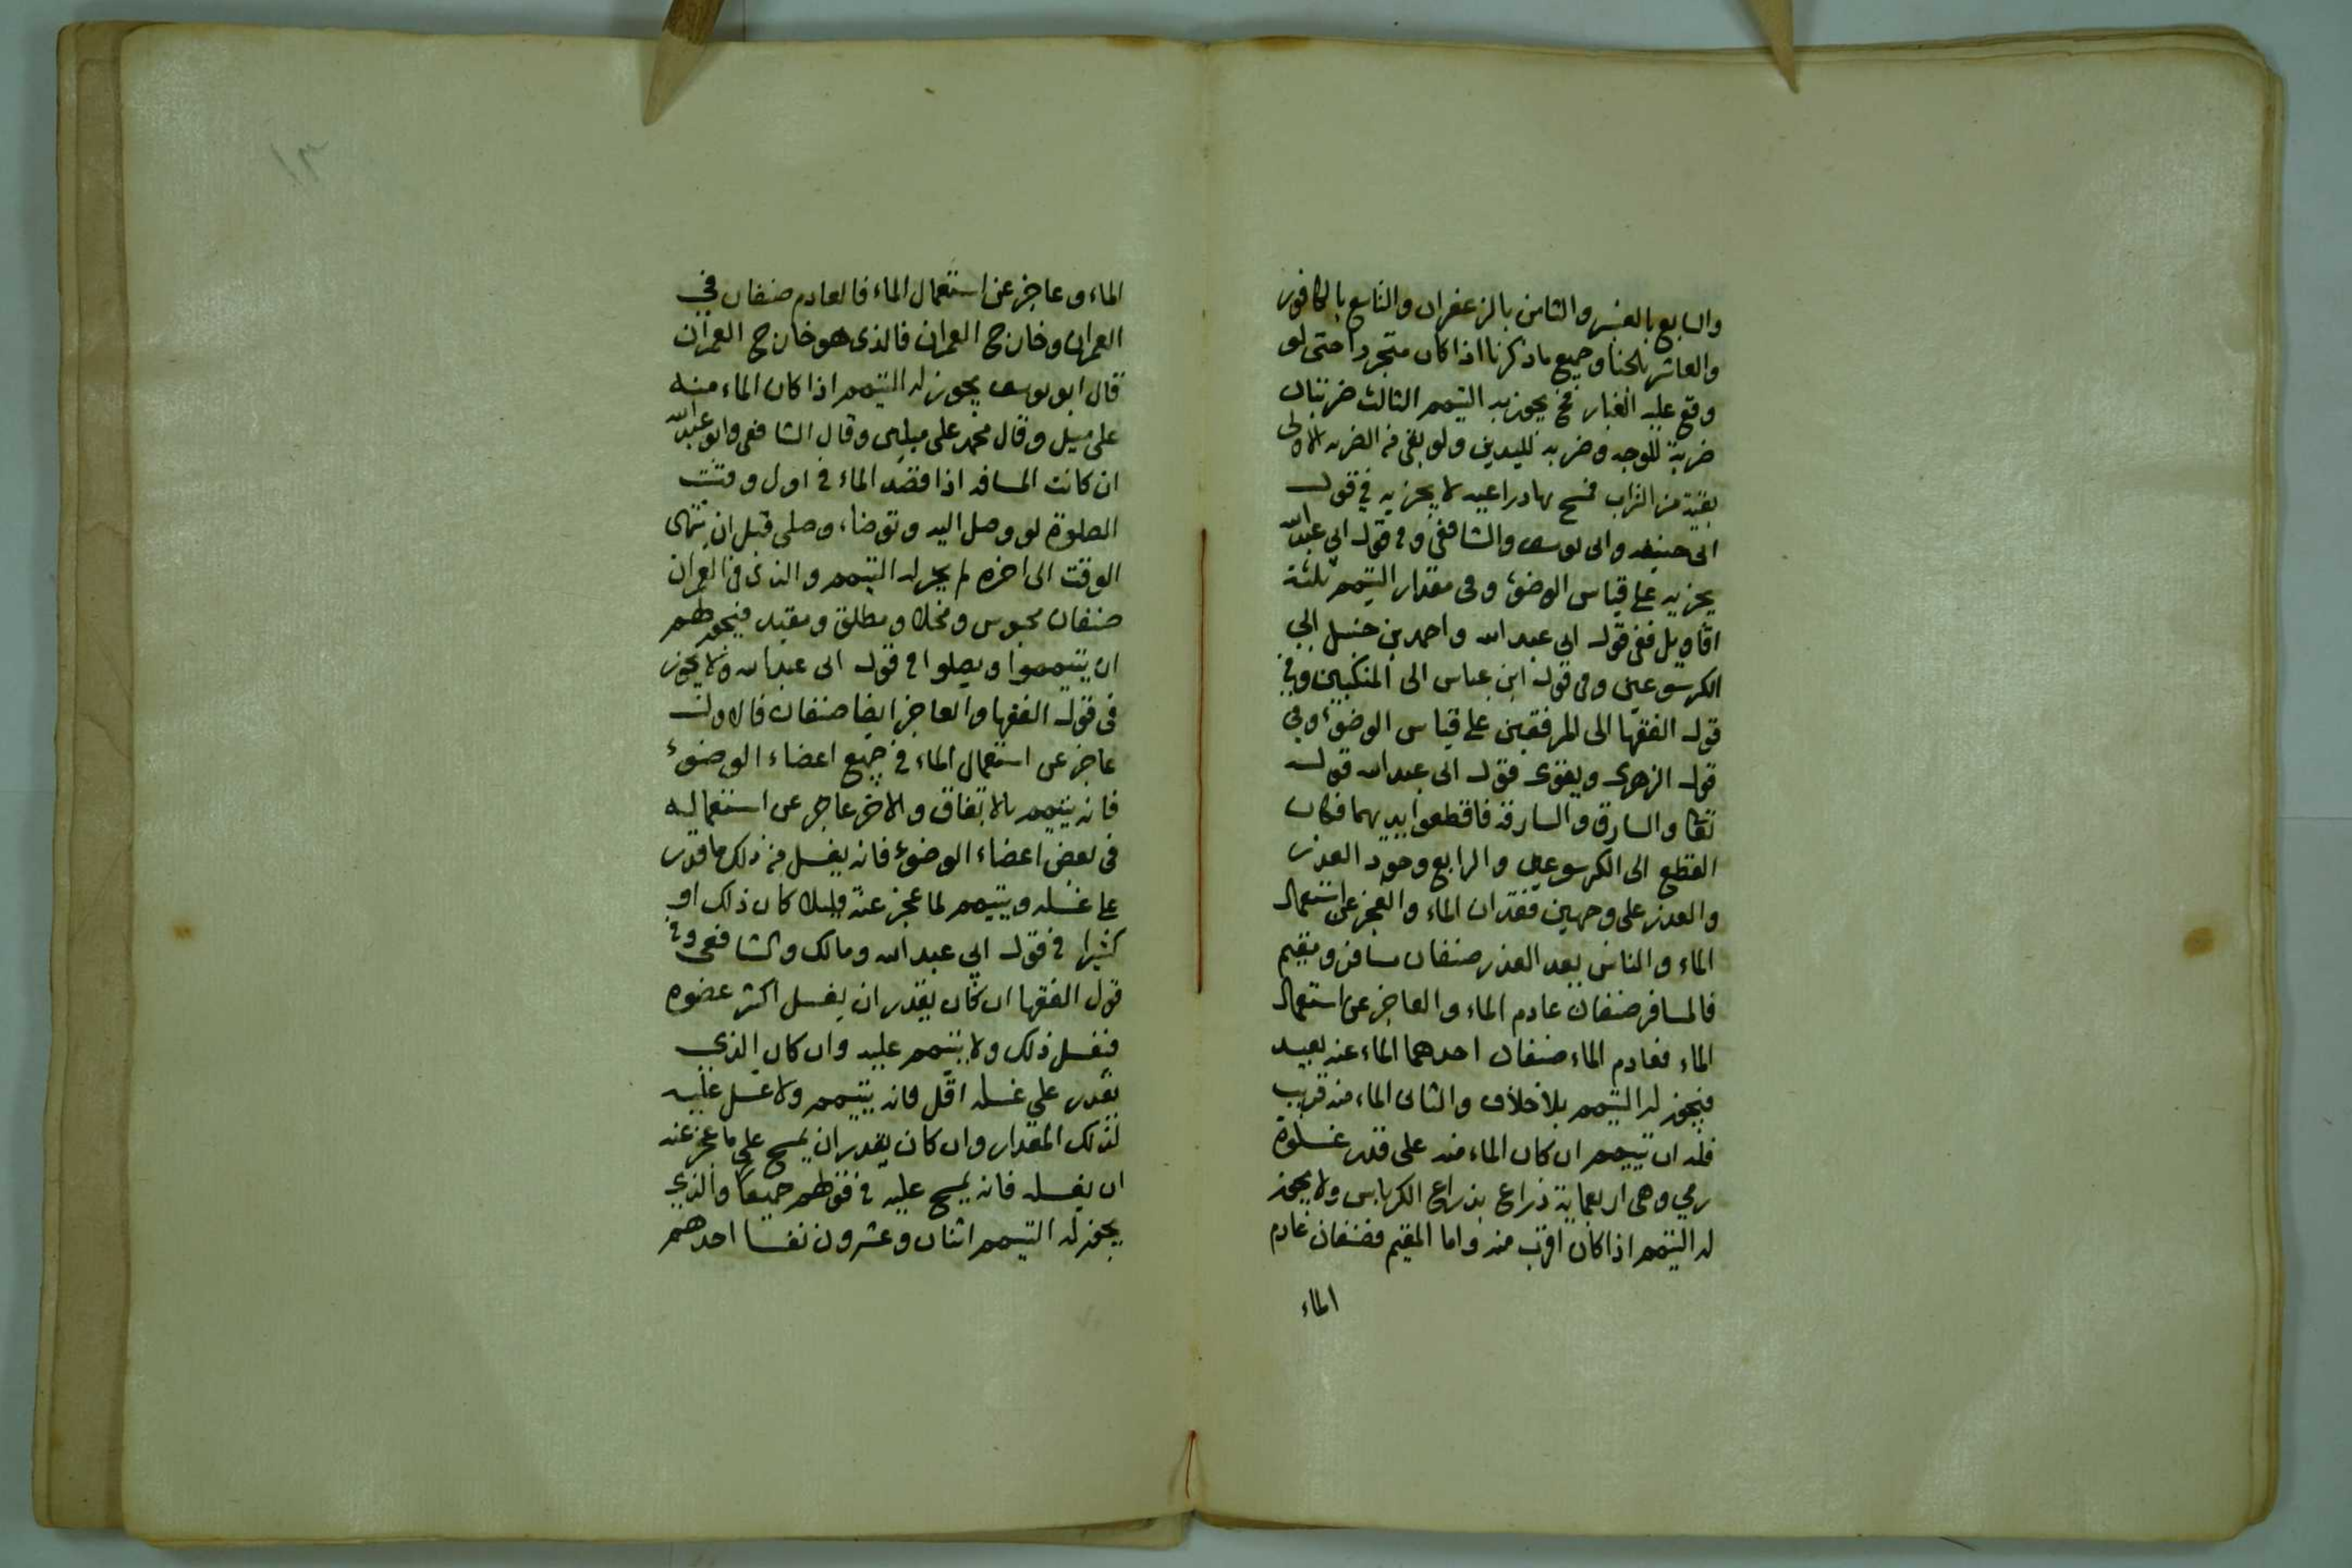 والسابع بالعنبر والثامن بالزعفران والتاسع بالكافور
والعاشر بالحنا وجميع ما ذكرنا اذا كان متجردا حتى لو
وقع عليه الغبار فح يجوز به التيمم الثالث ضربتان
ضربة للوجه وضربة لليدين ولو بقي من الضربه الاولى
بقية من التراب فمسح بها دراعيه لا يجزيه في قول
ابى حنيفه وابى يوسف والشافعي وفي قول ابي عبدالله
يجزيه على قياس الوضوء وفى مقدار التيمم ثلثة
اقاويل ففى قول ابى عبد الله واحمد بن حنبل الى
الكرسوعين وفى قول ابن عباس الى المنكبين وفي
قول الفقها الى المرفقين على قياس الوضوء وفي
قول الزهرى ويقوى قول ابى عبد الله قوله
تعا والسارق والسارقة فاقطعوا ايديهما فكان
القطع الى الكرسوعين والرابع وجود العذر
والعذر على وجهين فقدان الماء والعجز عن استعمال
الماء والناس بعد العذر صنفان مسافر ومقيم
فالمسافر صنفان عادم الماء والعاجز عن استعمال
الماء فعادم الماء صنفان احدهما الماء عنه بعيد
فيجوز له التيمم بلا خلاف والثانى الماء منه قريب
فله ان تييمم ان كان الماء منه على قدر غلوة
رمي وهى اربعماية ذراع بذراع الكرباس ولا يجوز
له التيمم اذا كان اقرب منه واما المقيم فصنفان عادم
الماء
١٣
الماء وعاجز عن استعمال الماء فالعادم صنفان في
العمران وخارج العمران فالذى هو خارج العمران
قال ابو يوسف يجوز له التيمم اذا كان الماء منه
على ميل وقال محمد على ميلين وقال الشافعى وابو عبدالله
ان كانت المسافه اذا قصد الماء في اول وقت
الصلوة لو وصل اليه وتوضاء وصلى قبل ان ينتهى
الوقت الى اخره لم يجز له التيمم والذى فى العمران
صنفان محبوس ومخلا ومطلق ومقيد فيجوز لهم
ان يتيمموا ويصلوا في قول ابى عبدالله ولا يجوز
فى قول الفقها والعاجز ايضا صنفان فالاول
عاجز عن استعمال الماء في جميع اعضاء الوضوء
فانه يتيمم بالاتفاق والاخر عاجز عن استعماله
فى بعض اعضاء الوضوء فانه يغسل من ذلك ما قدر
على غسله ويتيمم لما عجز عنه قليلا كان ذلك او
كثيرا في قول ابي عبد الله ومالك والشافعى وفي
قول الفقها ان كان يقدر ان يغسل اكثر عضوه
فيغسل ذلك ولا يتيمم عليه وان كان الذي
يقدر على غسله اقل فانه يتيمم ولا غسل عليه
لذلك المقدار وان كان يقدر ان يمسح على ما عجز عنه
ان يغسله فانه يمسح عليه في قولهم جميعا والذي
يجوز له التيمم اثنان وعشرون نفسا احدهم